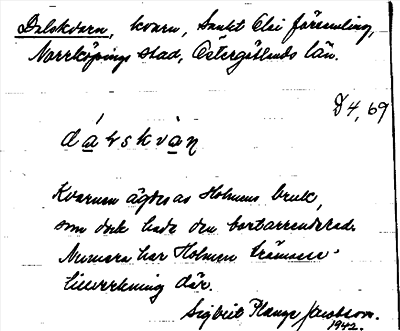 Dalskvarn, kvarn, Sankt Olai församling,
Norrköpings stad, Östergötlands län.
D4, 69
Kvarnen ägdes av Holmens bruk,
som dock hade den bortarrenderad.
Numera har Holmen
tillverkning där.
Sigbrit Plange Jacobson.
1942.